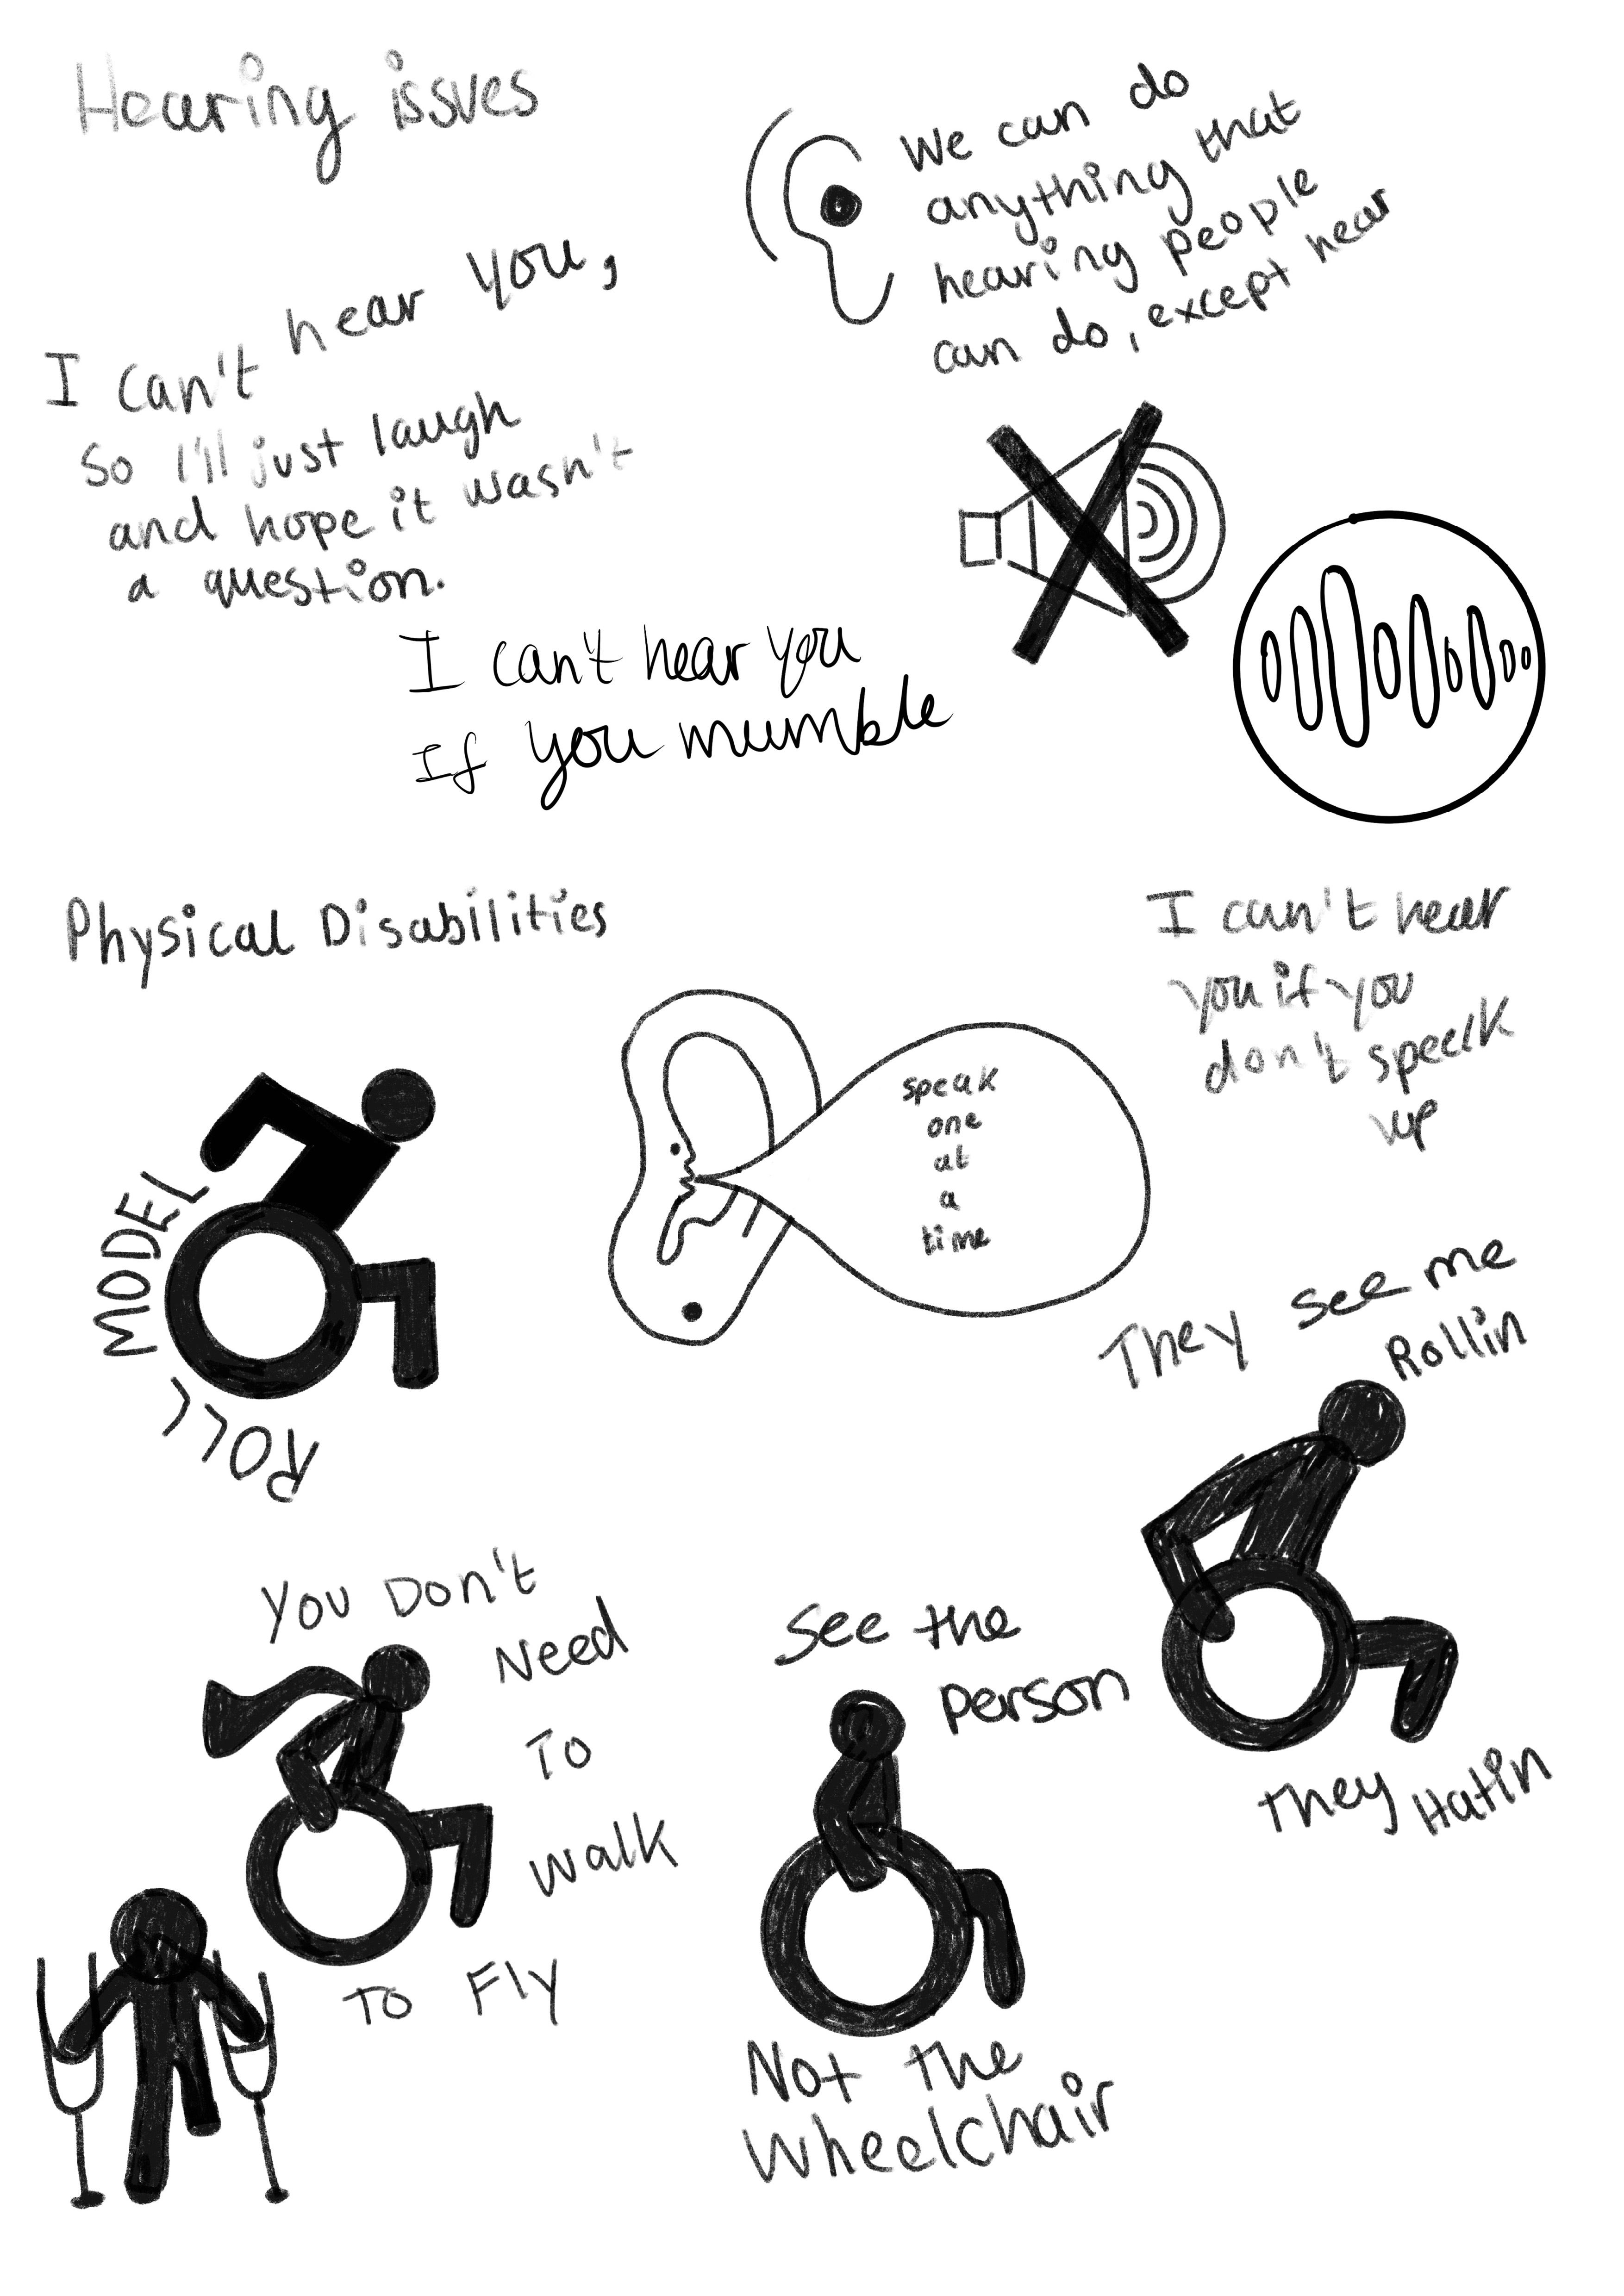 Hearing issues
We can do
anything that
hearing people
can do, except hear
I can't hear you,
So I'll just laugh
and hope it wasn't
a question.
I can't hear you
If you mumble
Physical Disabilities
I can't hear
you if you
don't speak
up
speak
one
at
a
time
ROLL MODEL
They see me
Rollin
They Hatin
You Don't
Need
To
Walk
To Fly
See the
person
Not the
Wheelchair